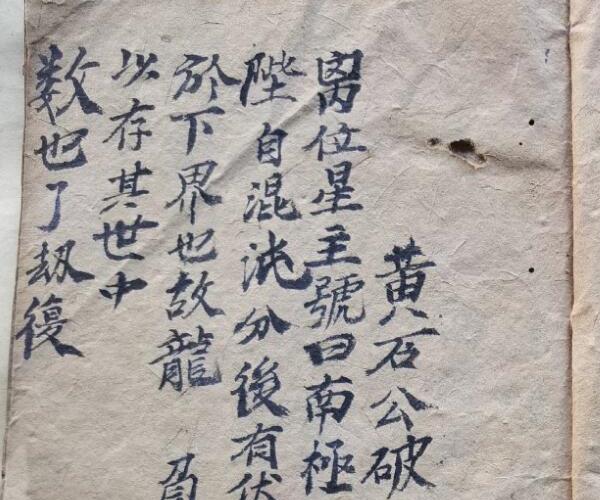 黃石公破
离位星主號曰南極
陛自混沌分後有伏
於下界也故龍
以存其世中
数也了劫復